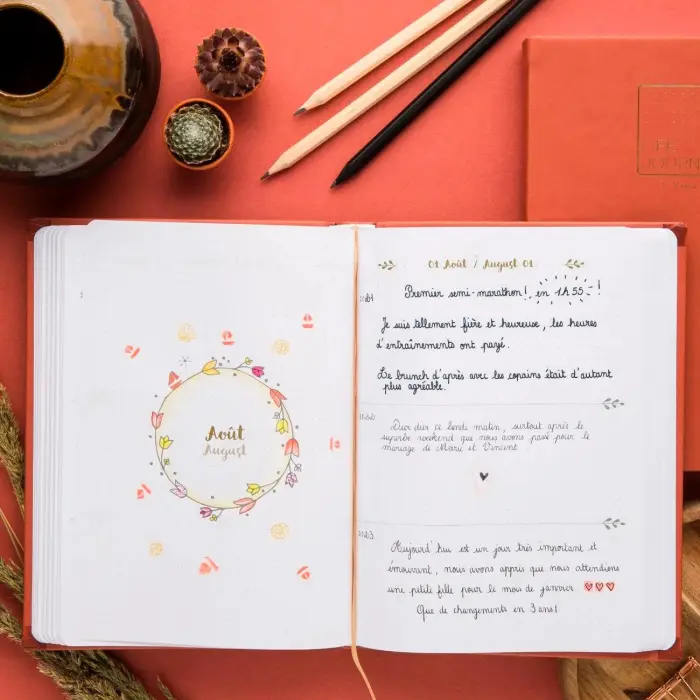 Août
August
01 Août / August 01
2021
Premier semi-marathon! en 1h55 !
Je suis tellement fière et heureuse, les heures
d'entraînements ont payé.
Le brunch d'après avec les copains était d'autant
plus agréable.
2022
Dur dur ce lundi matin, surtout après le
superbe weekend que nous avons passé pour le
mariage de Marie et Vincent
2023
Aujourd'hui est un jour très important et
émouvant, nous avons appris que nous attendions
une petite fille pour le mois de janvier
Que de changements en 3 ans!